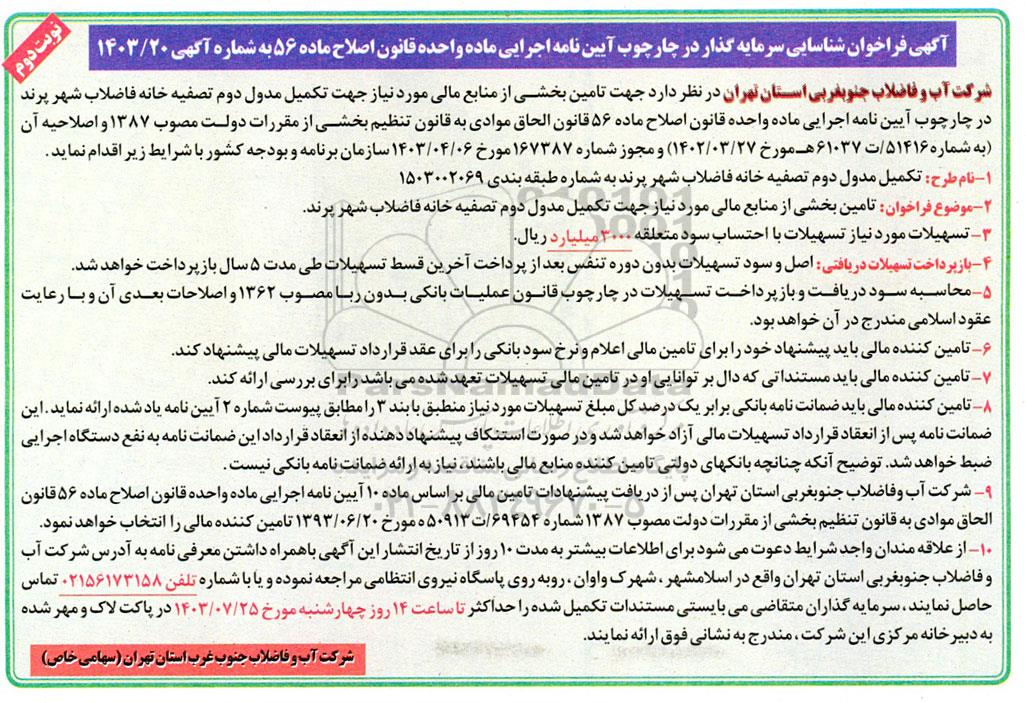 نوبت دوم
آگهی فراخوان شناسایی سرمایه گذار در چارچوب آیین نامه اجرایی ماده واحده قانون اصلاح ماده ۵۶ به شماره آگهی ۱۴۰۳/۲۰
شرکت آب و فاضلاب جنوبغربی استان تهران در نظر دارد جهت تامین بخشی از منابع مالی مورد نیاز جهت تکمیل مدول دوم تصفیه خانه فاضلاب شهر پرند
در چارچوب آیین نامه اجرایی ماده واحده قانون اصلاح ماده ۵۶ قانون الحاق موادی به قانون تنظیم بخشی از مقررات دولت مصوب ۱۳۸۷ و اصلاحیه آن
(به شماره ۵۱۴۱۶/ت ۶۱۰۳۷ هـ مورخ ۱۴۰۲/۰۳/۲۷) و مجوز شماره ۱۶۷۳۸۷ مورخ ۱۴۰۳/۰۴/۰۶ سازمان برنامه و بودجه کشور با شرایط زیر اقدام نماید.
۱-نام طرح: تکمیل مدول دوم تصفیه خانه فاضلاب شهر پرند به شماره طبقه بندی ۱۵۰۳۰۰۲۰۶۹
۲-موضوع فراخوان: تامین بخشی از منابع مالی مورد نیاز جهت تکمیل مدول دوم تصفیه خانه فاضلاب شهر پرند.
۳- تسهیلات مورد نیاز تسهیلات با احتساب سود متعلقه ۳۰۰۰ میلیارد ریال.
۴-بازپرداخت تسهیلات دریافتی: اصل و سود تسهیلات بدون دوره تنفس بعد از پرداخت آخرین قسط تسهیلات طی مدت ۵ سال بازپرداخت خواهد شد.
۵-محاسبه سود دریافت و بازپرداخت تسهیلات در چارچوب قانون عملیات بانکی بدون ربا مصوب ۱۳۶۲ و اصلاحات بعدی آن و با رعایت
عقود اسلامی مندرج در آن خواهد بود.
۶- تامین کننده مالی باید پیشنهاد خود را برای تامین مالی اعلام و نرخ سود بانکی را برای عقد قرارداد تسهیلات مالی پیشنهاد کند.
۷- تامین کننده مالی باید مستنداتی که دال بر توانایی او در تامین مالی تسهیلات تعهد شده می باشد را برای بررسی ارائه کند.
۸-تامین کننده مالی باید ضمانت نامه بانکی برابر یک درصد کل مبلغ تسهیلات مورد نیاز منطبق با بند ۳ را مطابق پیوست شماره ۲ آیین نامه یاد شده ارائه نماید. این
ضمانت نامه پس از انعقاد قرارداد تسهیلات مالی آزاد خواهد شد و در صورت استنکاف پیشنهاد دهنده از انعقاد قرارداد این ضمانت نامه به نفع دستگاه اجرایی
ضبط خواهد شد. توضیح آنکه چنانچه بانکهای دولتی تامین کننده منابع مالی باشند، نیاز به ارائه ضمانت نامه بانکی نیست.
۹- شرکت آب وفاضلاب جنوبغربی استان تهران پس از دریافت پیشنهادات تامین مالی بر اساس ماده ۱۰ آیین نامه اجرایی ماده واحده قانون اصلاح ماده ۵۶ قانون
الحاق موادی به قانون تنظیم بخشی از مقررات دولت مصوب ۱۳۸۷ شماره ۶۹۴۵۴/ت۵۰۹۱۳ه مورخ ۱۳۹۳/۰۶/۲۰ تامین کننده مالی را انتخاب خواهد نمود.
۱۰- از علاقه مندان واجد شرایط دعوت می شود برای اطلاعات بیشتر به مدت ۱۰ روز از تاریخ انتشار این آگهی باهمراه داشتن معرفی نامه به آدرس شرکت آب
و فاضلاب جنوبغربی استان تهران واقع در اسلامشهر، شهرک واوان، روبه روی پاسگاه نیروی انتظامی مراجعه نموده و یا با شماره تلفن ۰۲۱۵۶۱۷۳۱۵۸ تماس
حاصل نمایند، سرمایه گذاران متقاضی می بایستی مستندات تکمیل شده را حداکثر تا ساعت ۱۴ روز چهارشنبه مورخ ۱۴۰۳/۰۷/۲۵ در پاکت لاک و مهر شده
به دبیرخانه مرکزی این شرکت، مندرج به نشانی فوق ارائه نمایند.
شرکت آب و فاضلاب جنوب غرب استان تهران (سهامی خاص)
ParsNamadData
۰۲۱-۸۸۳۴۹۶۷۰-۵